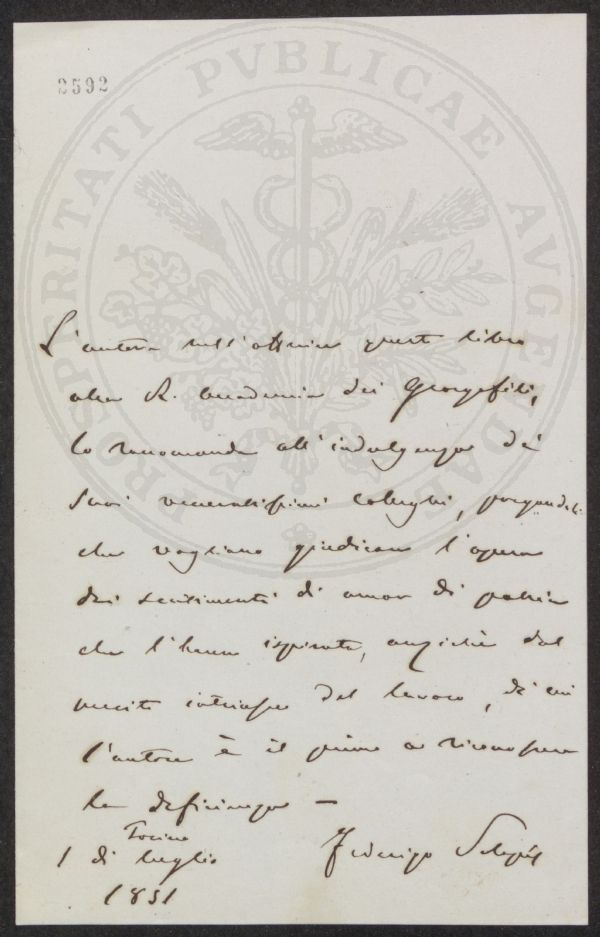 2592
PROSPERITATI PVBLICAE AVGENDAE
L'autore nell'offrire questo libro
alla R. Accademia dei Georgofili,
lo raccomanda all'indulgenza dei
suoi veneratissimi colleghi, pregandoli
che vogliano giudicare l'opera
dai sentimenti di amor di patria
che l'hanno ispirata, anzichè dal
merito intrinseco del lavoro, di cui
l'autore è il primo a riconoscere
la deficienza —
Torino
1 di luglio
1851
Federigo Sclopis